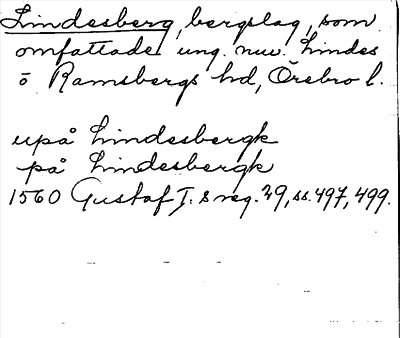 Lindesberg, bergslag, som
omfattade ung. nuv. Lindes
o Ramsbergs hd, Örebro l.
upå Lindesbergk
på Lindesbergk
1560 Gustaf I. s reg. 29, ss. 497, 499.